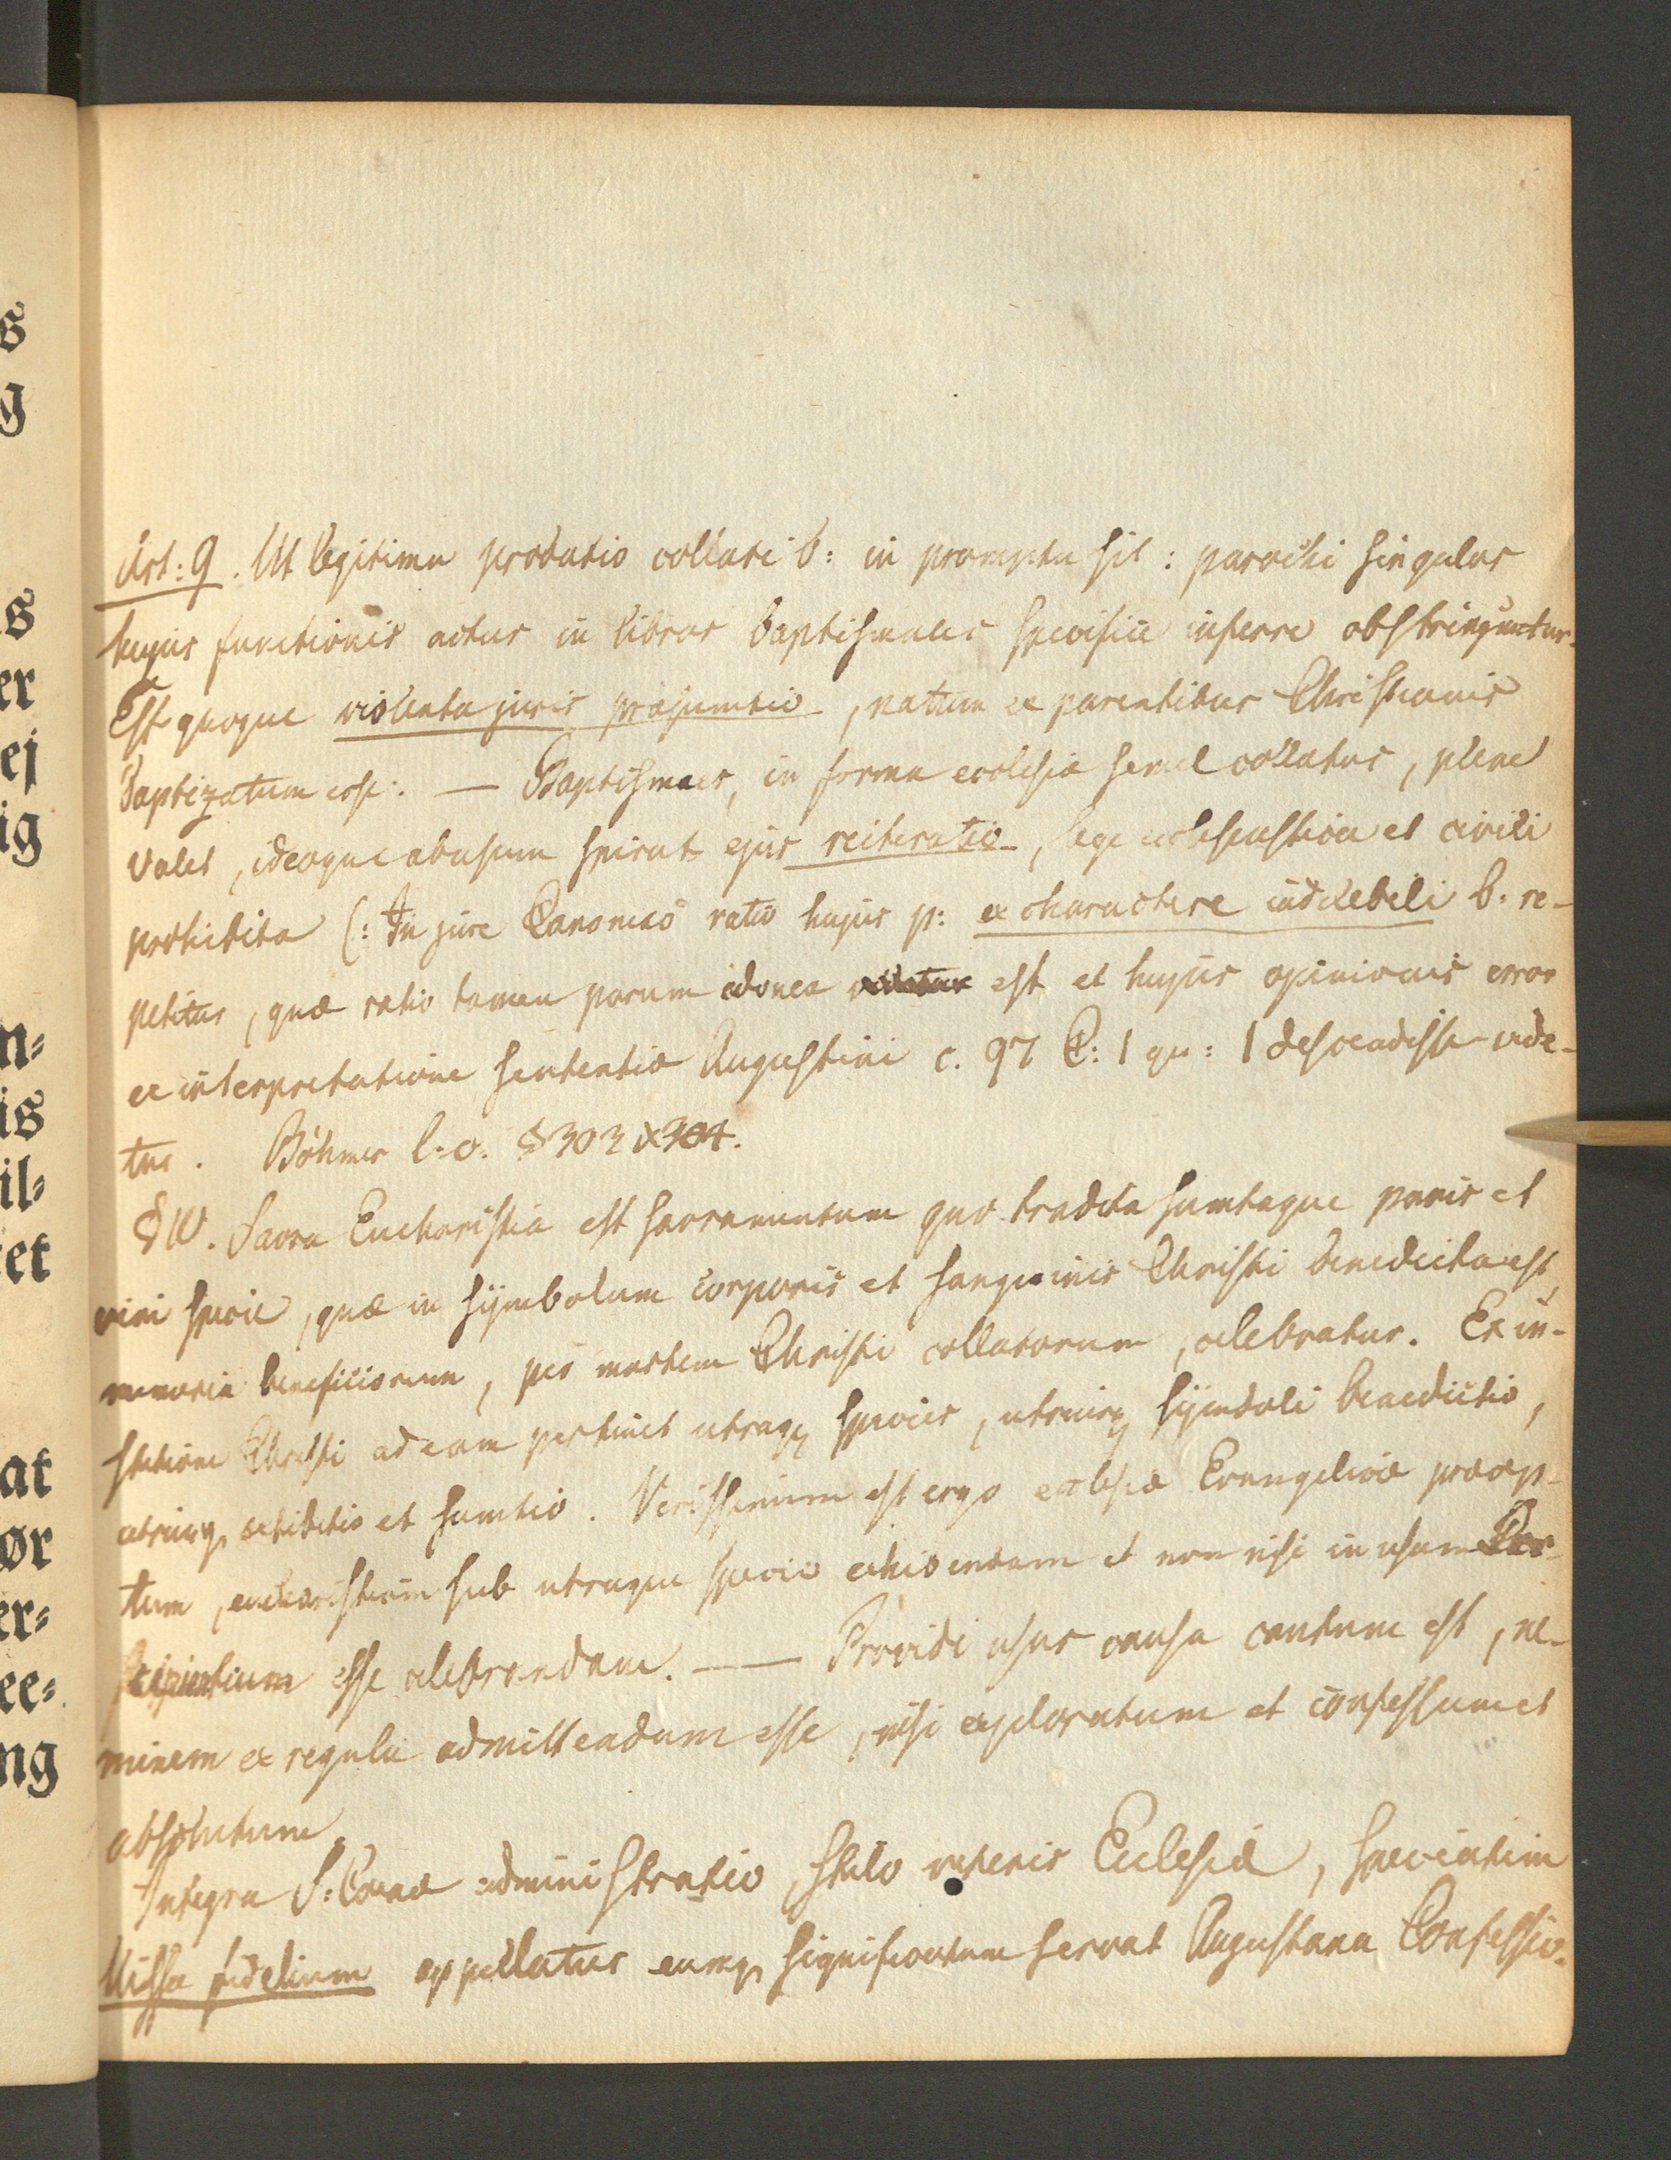 Art: 9. Ut legitima probatio collati b: in promptu sit: parochi singulos
hujus functionis actus in libros baptismales specifice inferre obstringuntur.
Est quoque violenta juris præsumtio, natum ex parentibus Christianis
baptizatum esse. — Baptismus, in forma ecclesiæ semel collatus, plene
valet, ideoque abusum spirat ejus reiteratio, lege ecclesiastica et civili
prohibita (: In jure Canonico ratio hujus p: ex charactere indelebili b: re-
petitur, quæ ratio tamen parum idonea est et hujus opinionis error
ex interpretatione sententiæ Augustini c. 97 C: 1 qu: 1 descendisse vide-
tur. Böhmer l. c. § 303 & 304.
§ 10. Sacra Eucharistia est sacramentum quo tradita sumtaque panis et
vini specie, quæ in symbolum corporis et sanguinis Christi benedicta est,
memoria beneficiorum, per mortem Christi collatorum, celebratur. Ex in-
stitutione Christi ad eam pertinet utraq species, utriusq symboli benedictio,
utriusq exhibitio et sumtio. Verissimum est ergo ecclesiæ Evangelicæ præcep-
tum, eucharistiam sub utraque specie exhibendam et non nisi in usum
percipientium esse celebrandam. — Providi usus causa cautum est, ne-
minem ex regula admittendum esse, nisi exploratum et confessum et
absolutum.
Integra S: Cœnæ administratio, stilo veteris Ecclesiæ, speciatim
Missa fidelium appellatur eumq significatum servat Augustana Confessio.
s
g
s
er
ej
ig
n-
is
il-
et
at
ør
er-
ee-
ng